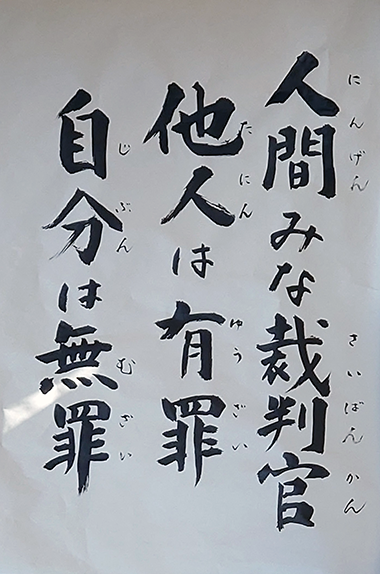 人間みな裁判官
にんげん さいばんかん
他人は有罪
たにん ゆうざい
自分は無罪
じぶん むざい